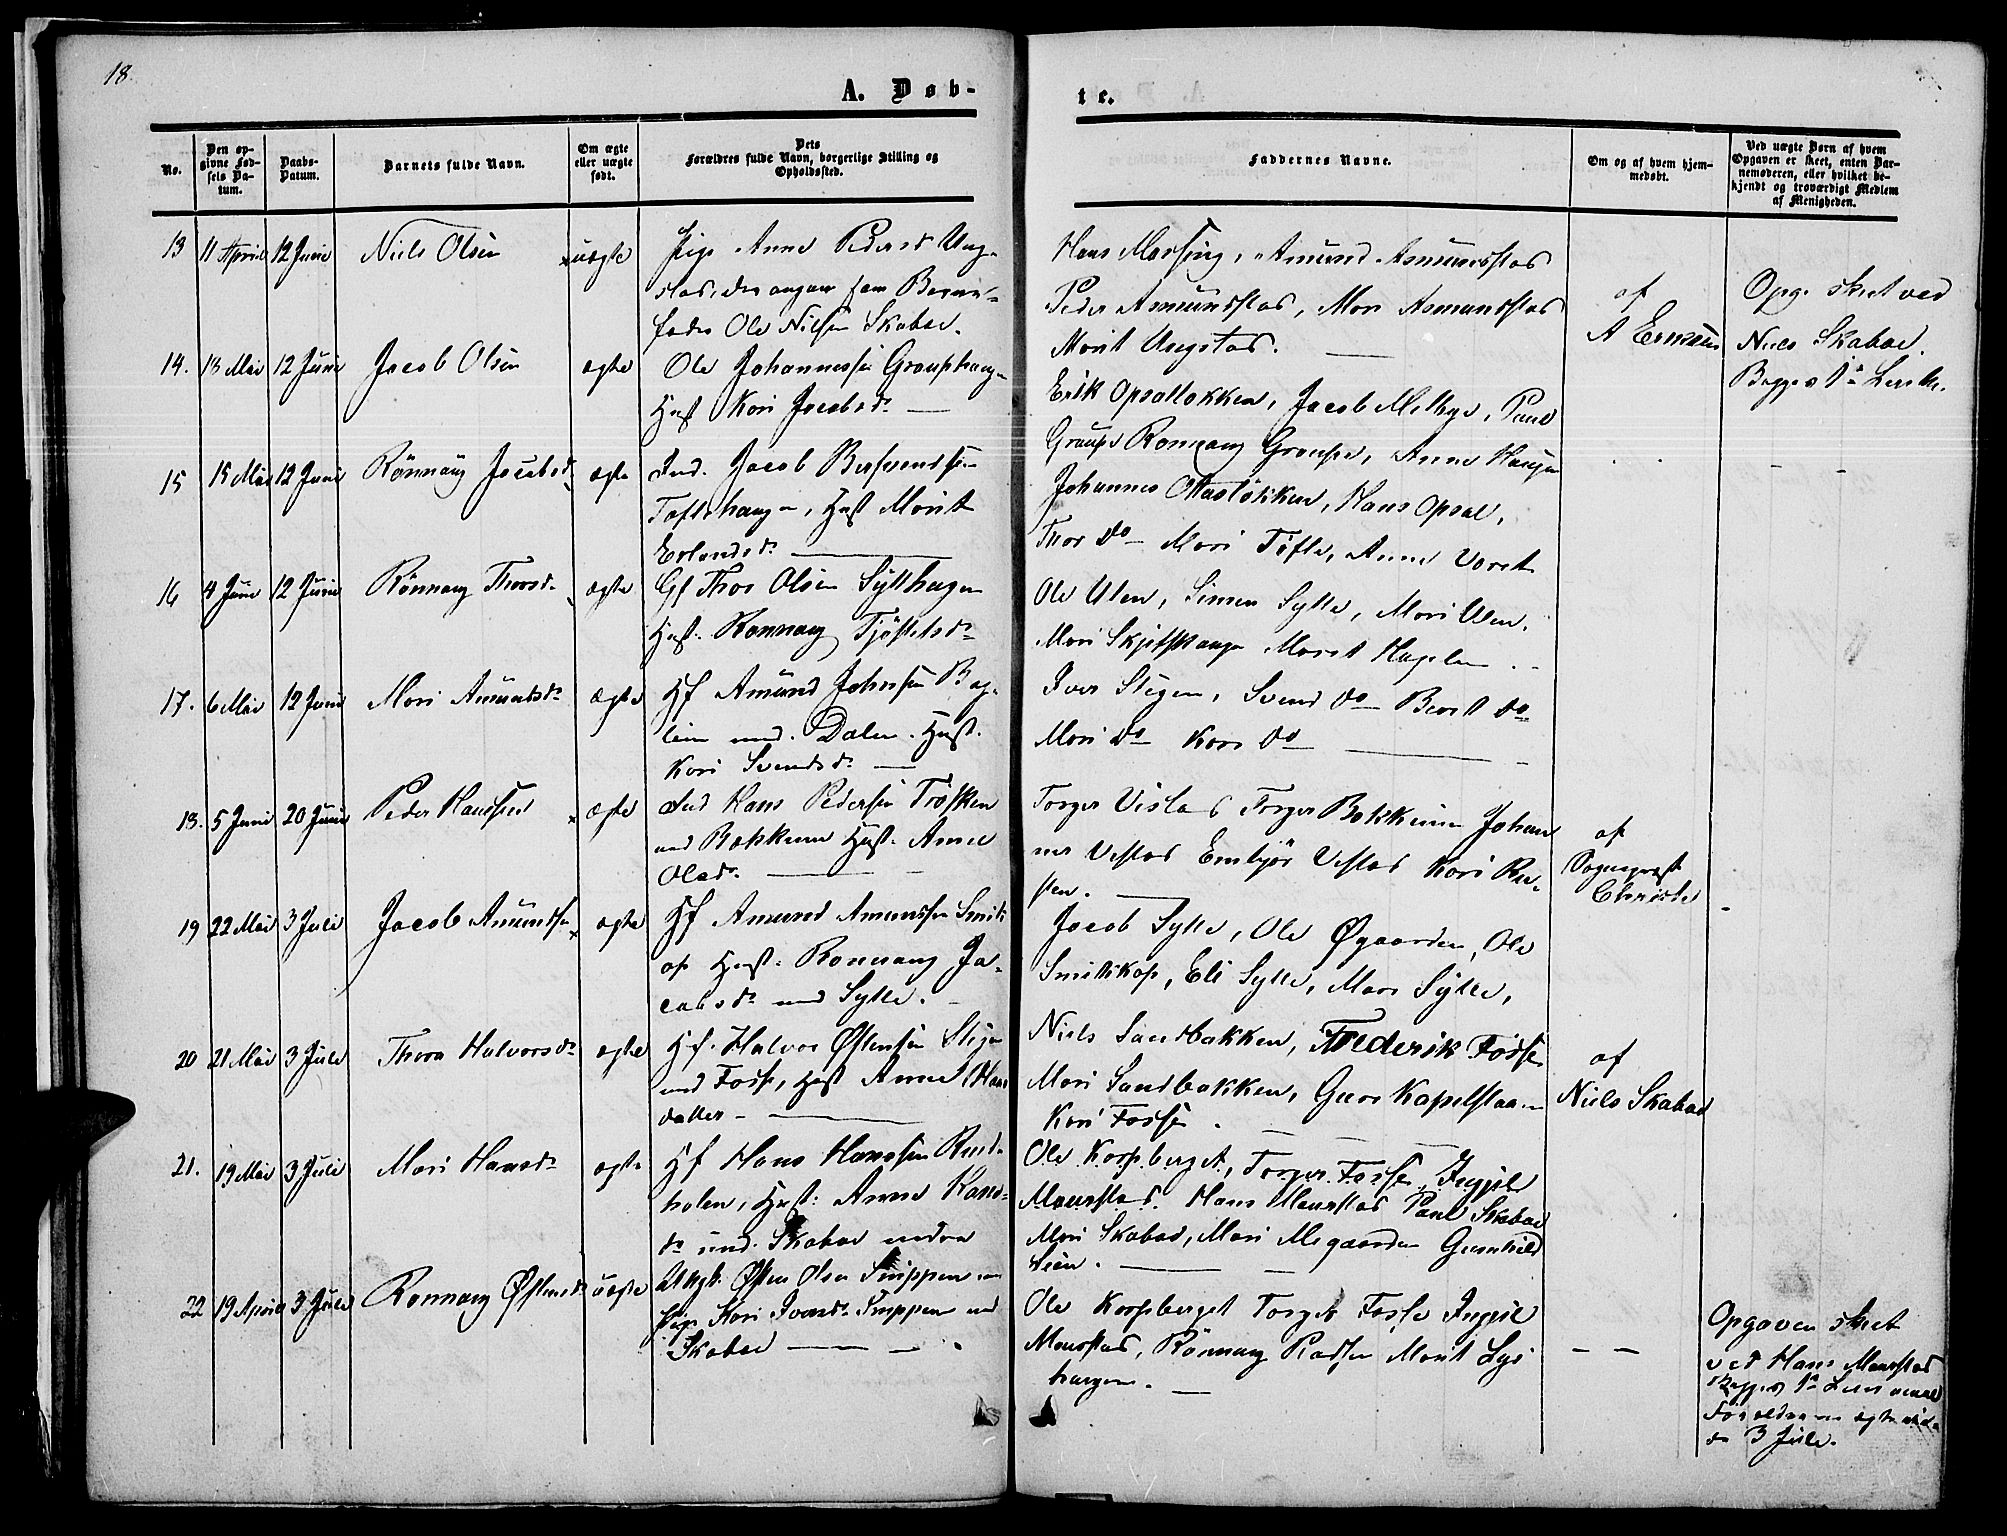 18.
A. Døb-
te.
No.
Den op-
givne Fød-
sels Da-
tum.
Daabs-
Datum.
Barnets fulde Navn.
Om ægte
eller uægte
født.
Dets
Forældres fulde Navn, borgerlige Stilling og
Opholdssted.
Faddernes Navne.
Om og af hvem hjem-
medøbt.
Ved uægte Børn af hvem
Opgaven er skeet, enten Bar-
nemoderen, eller hvilket be-
kjendt og troværdigt Medlem
af Menigheden.
13 11 April 12 Juni Niels Olsen uægte Pige Anne Pedersd Ung-
stad, der angav som Barne-
fader Ole Nielsen Skaboe.
Hans Messing, Amund Amundstad
Peder Amundstad, Mari Amundstad
Marit Ungstad.
af
A Eriksen
Opg. skeet ved
Niels Skaboe.
Begges 1ste
14. 13 Mai 12 Juni Jacob Olsen ægte Ole Johannessen Grauphaug-
Hust Kari Jacobsdr
Erik Opsalløkken, Jacob Melbye, Paul
Graupe Rønnaug Graupe, Anne Haugen
15 15 Mai 12 Juni Rønnaug Jacobsdr ægte Ind. Jacob
Toftehaugen, Hust Marit
Erlandsdr
Johannes Ottasløkken, Hans Opsal,
Thor Do Mari Tofte, Anne
16 4 Juni 12 Juni Rønnaug Thorsdr ægte Gf Thor Olsen Syltehagen
Hust. Rønnaug Tjøstelsdr
Ole Ulen, Simen Sylte, Mari Ulen,
Mari Marit
17. 6 Mai 12 Juni Mari Amundsdr ægte Hf Amund Johnsen Bag-
lien und. Dalen. Hust.
Kari Svendsdr
Iver Stegen, Svend Do Berit Do
Mari Do Kari Do
18. 5 Juni 20 Juni Peder Hanssen ægte Ind Hans Pedersen
und Bakkum Hust. Anne
Olsdr.
Torger Vistad Torger Bakkum Johan
nes Vistad Embjør Vistad Kari Ru-
sten.
af
Sognepræst
Christie
19 22 Mai 3 Juli Jacob Amundsen ægte Hf Amund Amundsen Smitsk
op Hust. Rønnaug Ja-
cobsdr und Sylte.
Jacob Sylte, Ole Øgaarden, Ole
Smitskop, Eli Sylte, Mari Sylte,
20 21 Mai 3 Juli Thora Halvorsdr ægte Hf. Halvor Østensen Stegen
und Fosse, Hust Anne Hans
datter
Niels Sandbakken, Frederik Fosse
Mari Sandbakken, Guro Kapelstaen
Kari Fosse.
af
Niels Skaboe
21. 19 Mai 3 Juli Mari Hansdr ægte Hf Hans Hanssen Rind-
holen, Hust: Anne Hans-
dr und. Skaboe nedre
Ole Korpberget, Torger Fosse, Ingjel
Maurstad. Hans Maurstad Paul Skaboe
Mari Skaboe, Mari Megaarden Gunhild
Lien.
22 19 April 3 Juli Rønnaug Østensdr uægte Ungk. Østen Olsen Snippen
Pige Kari Iversdr Snippen und
Skaboe
Ole Korpberget Torger Fosse Ingjel
Maurstad, Rønnaug Marit
haugen.
Opgaven skeet
ved Hans Maurstad
Begges 1ste
Forældrene ægteviede
3 Juli.